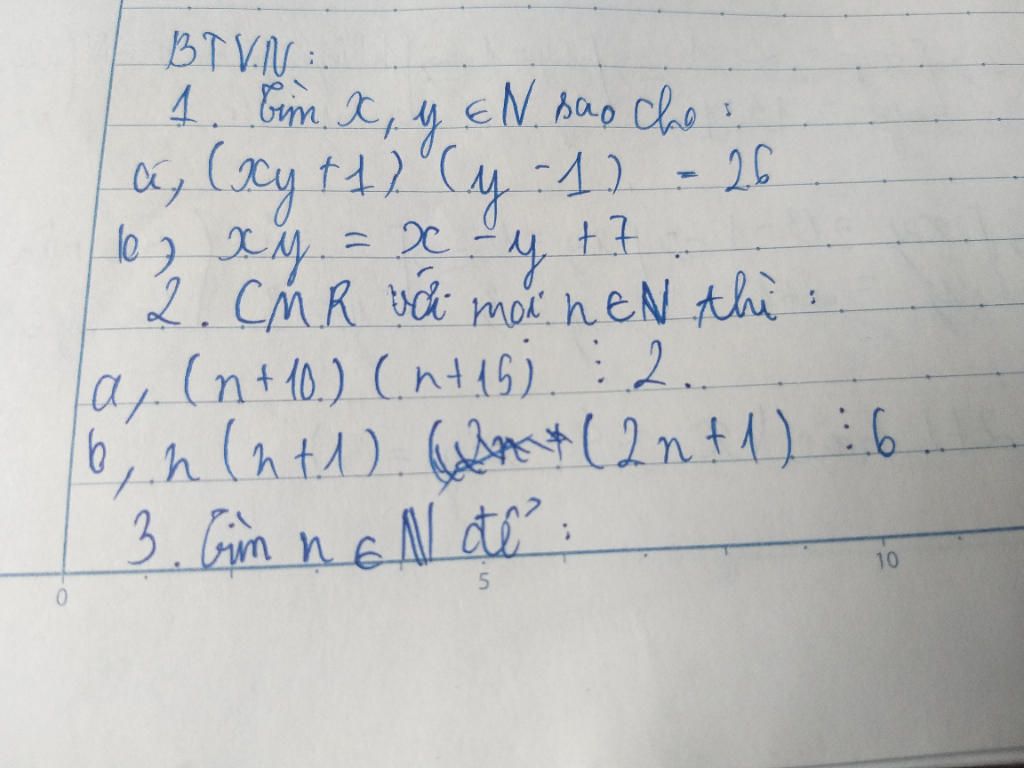 BTVN:
1. Tìm x, y ∈ N sao cho:
a, (xy + 1) (y - 1) = 26
b, xy = x - y + 7
2. CMR với mọi n ∈ N thì:
a, (n + 10) (n + 15) ⋮ 2.
b, n (n + 1) (2n + 1) ⋮ 6
3. Tìm n ∈ N để:
0 5 10